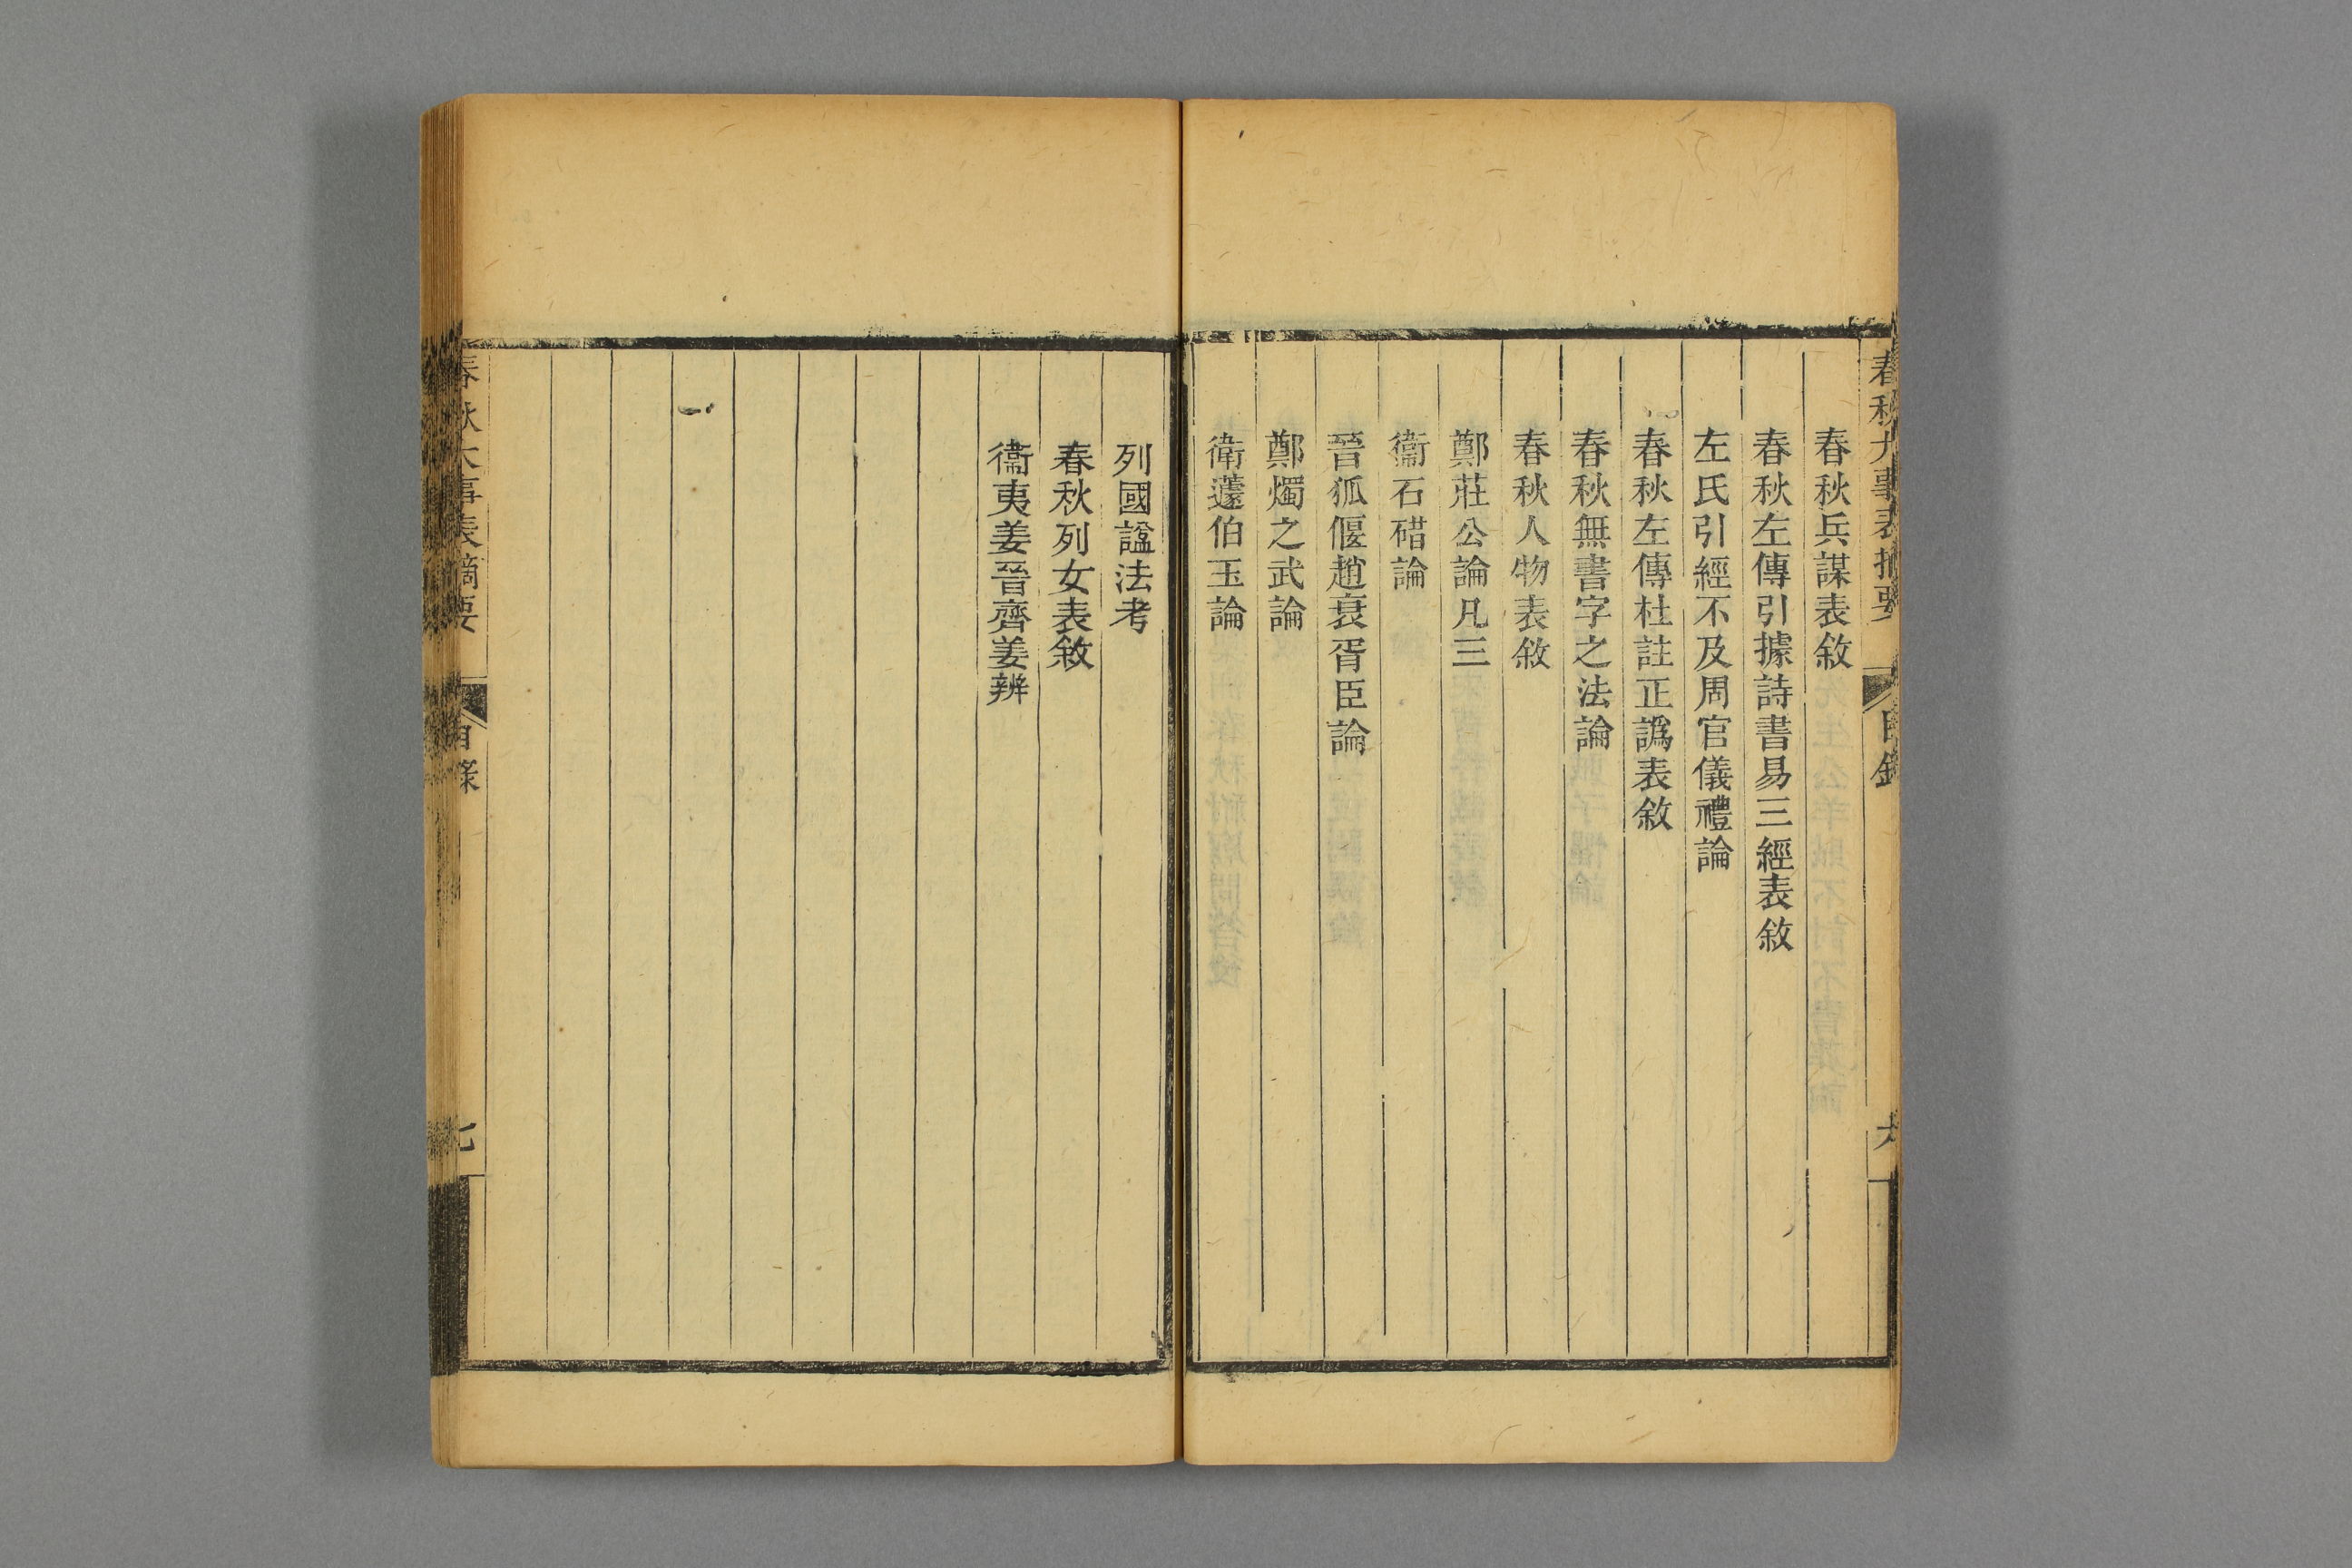 春秋大事表摘要 目錄 六
春秋兵謀表敘
春秋左傳引據詩書易三經表敘
左氏引經不及周官儀禮論
春秋左傳杜註正譌表敘
春秋無書字之法論
春秋人物表敘
鄭莊公論凡三
衞石碏論
晉狐偃趙衰胥臣論
鄭燭之武論
衛蘧伯玉論
列國諡法考
春秋列女表敘
衞夷姜晉齊姜辨
春秋大事表摘要 目錄 七